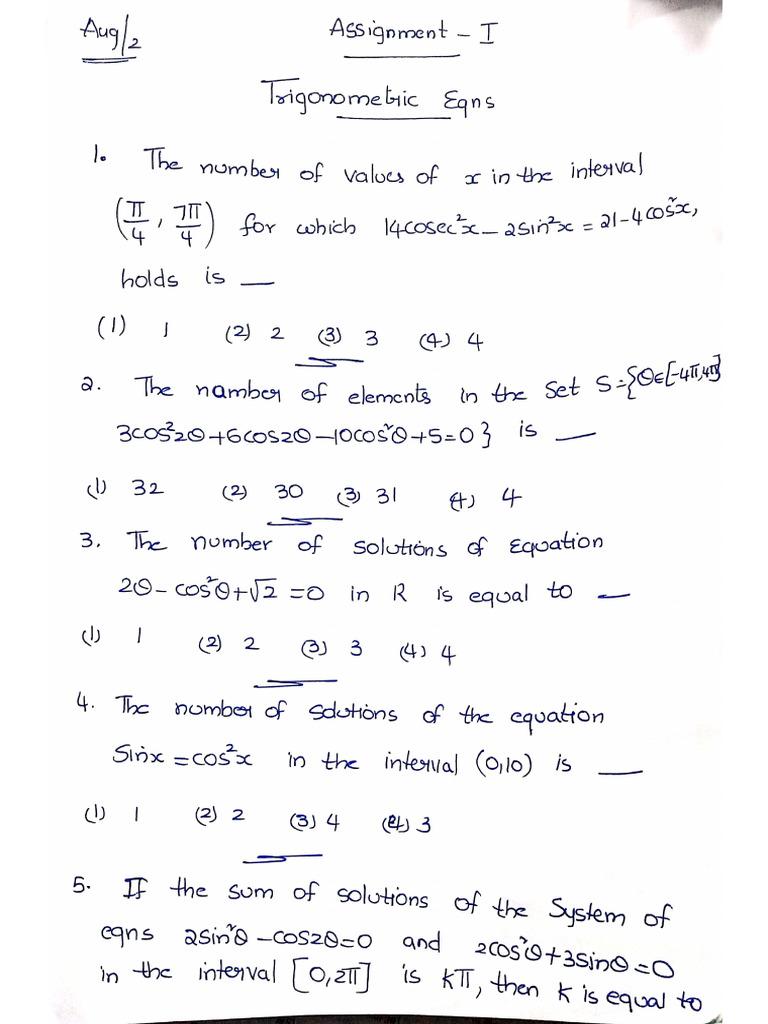 Aug/2
Assignment - I
Trigonometric Eqns
1. The number of values of x in the interval
(π/4, 7π/4) for which 14cosec²x - 2sin²x = 21 - 4cos²x,
holds is —
(1) 1 (2) 2 (3) 3 (4) 4
2. The namber of elements in the Set S={θ∈[-4π,4π]
3cos²2θ+6cos2θ-10cos²θ+5=0} is —
(1) 32 (2) 30 (3) 31 (4) 4
3. The number of solutions of Equation
2θ - cos²θ + √2 = 0 in R is equal to —
(1) 1 (2) 2 (3) 3 (4) 4
4. The number of solutions of the equation
Sinx = cos²x in the interval (0,10) is —
(1) 1 (2) 2 (3) 4 (4) 3
5. If the sum of solutions of the System of
eqns 2sin²θ - cos2θ=0 and 2cos²θ+3sinθ=0
in the interval [0,2π] is kπ, then K is equal to